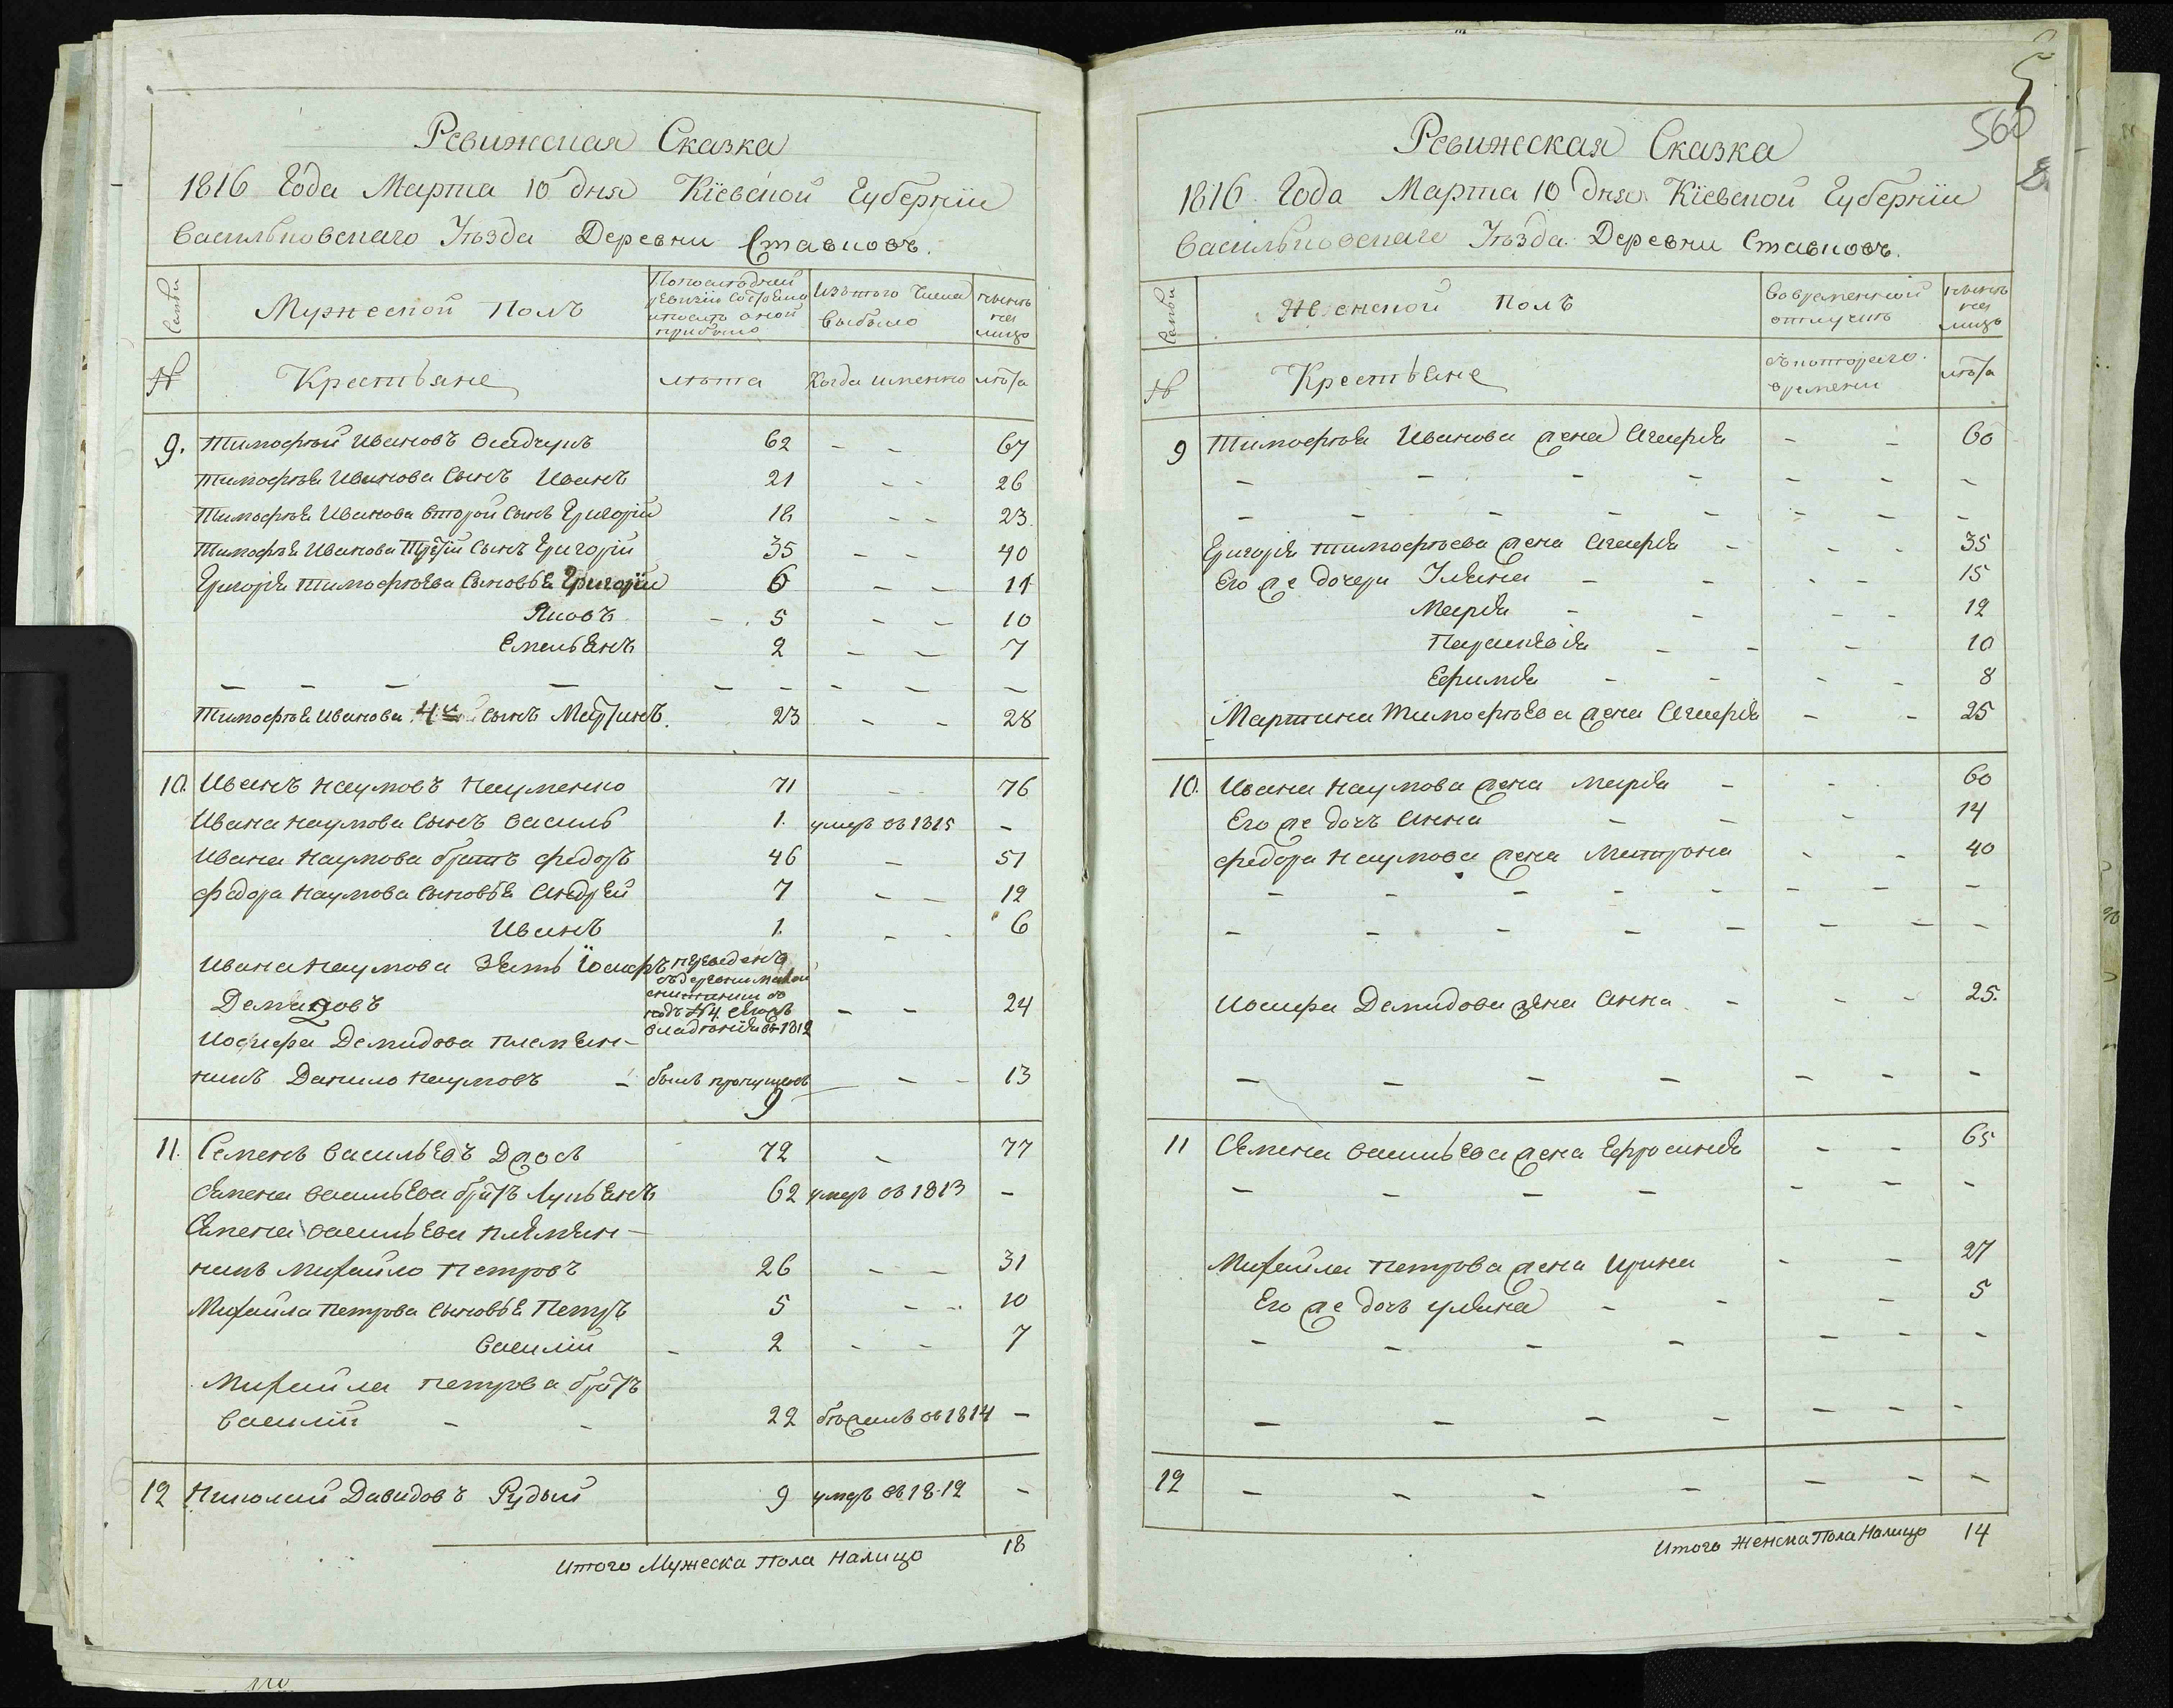 Ревижская Сказка
1816 Года Марта 10 дня Кіевской Губерніи
Васильковскаго Уѣзда Деревни Ставковъ.
Семьи
Мужеской Полъ
По последней
ревизіи состояло
и после оной
прибыло
Изъ того числа
выбыло
нынѣ
на
лицо
№
Крестьяне
лѣта
Когда именно
лѣта
9. Тимофѣй Ивановъ 62 - - 67
Тимофѣя Иванова Сынъ Иванъ 21 - - 26
Тимофѣя Иванова второй Сынъ Григорій 18 - - 23
Тимофѣя Иванова Третій Сынъ Григорій 35 - - 40
Григорія Тимофѣева Сыновья Григорій 6 - - 11
Яковъ - 5 - - 10
Емельянъ 2 - - 7
- - - - - - - - -
Тимофѣя Иванова 4й Сынъ Мартинъ. 23 - - 28
10. Иванъ Наумовъ Науменко 71 - - 76
Ивана Наумова Сынъ Василь 1. умеръ въ 1815 -
Ивана Наумова братъ Федоръ 46 - 51
Федора Наумова Сыновья Андрей 7 - - 12
Иванъ 1. - - 6
Ивана Наумова Зять Іосифъ переведенъ
съ деревни Малой
Демидовъ - - 24
подъ №4
владѣнія въ 1812
Иосифа Демидова племян-
никъ Данило Наумовъ - былъ пропущенъ - - 13
9
11. Семенъ Васильевъ 72 - 77
Семена Васильева братъ Лукьянъ 62 умеръ въ 1813 -
Семена Васильева племян-
никъ Михайло Петровъ 26 - - 31
Михайла Петрова Сыновья Петръ 5 - - 10
Василій - 2 - - 7
Михайла Петрова братъ
Василій - - 22 бѣжалъ въ 1814 -
12 Николай Давидовъ Рудый 9 умеръ въ 1812 -
Итого Мужеска Пола Налицо 18
5
560
Ревижская Сказка
1816 Года Марта 10 дня Кіевской Губерніи
Васильковскаго Уѣзда Деревни Ставковъ.
Семьи
Женской Полъ
Во временной
отлучкѣ
нынѣ
на
лицо
№
Крестьяне
Съ котораго
времени
лѣта
9 Тимофѣя Иванова жена Агафія - - 60
- - - - - - -
- - - - - - - -
Григорія Тимофѣева жена Агафія - - - 35
Его же дочери Уляна - - - - 15
Марія - - - - 12
Параскевія - - - 10
Ефимія - - - - 8
Мартина Тимофѣева жена Агафія - - 25
10. Ивана Наумова жена Марія - - - 60
Его же дочь Анна - - - 14
Федора Наумова жена Матрона - - 40
- - - - - - - -
- - - - - - - -
Иосифа Демидова жена Анна - - - 25.
- - - - - - -
11 Семена Васильева жена Ефросинія - - 65
- - - - - - -
Михайла Петрова жена Ирина - - 27
Его же дочь Уляна - - - 5
- - - - - - -
- - - - - - -
12 - - - - - - -
Итого Женска Пола Налицо 14